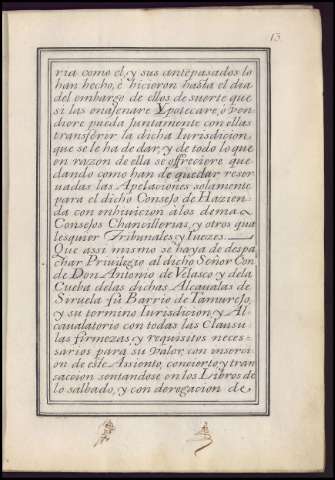 13
ria como el, y sus antepasados lo
han hecho, é hicieron hasta el dia
del embargo de ellos de suerte que
si las enajenare Ypotecare, o ven
diere pueda Juntamente con ellas
transferir la dicha Iurisdicion,
que se le ha de dar, y de todo lo que
en razon de ella se offreciere que
dando como han de quedar reser
uadas las Apelaciones solamente
para el dicho Consejo de Hazien
da con enhiuicion a los demas
Consejos Chancillerias, y otros qua
lesquier Tribunales, y Iuezes.
Que assi mismo se haya de despa
char Priuilegio al dicho Señor Con
de Don Antonio de Velasco y de la
Cueba de las dichas Alcaualas de
Siruela su Barrio de Tamurejo,
y su termino Iurisdicion, y Al
caualatorio con todas las Clausu
las firmezas, y requisitos neces
sarios para su valor, con insercion
on de este Assiento, concierto, y tran
saccion sentandose en los Libros de
lo salbado, y con derogacion de